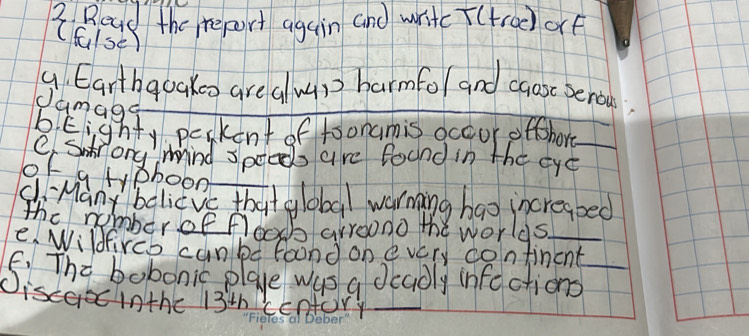 2. Read the report again and write T(true) or F
(false)
a. Earthquakes are always harmful and cause serous
damage
b. Eighty percent of tsonamis occur offshore
c. Strong wind speeds are found in the eye
of a typhoon
d.-Many believe that global warming has increased
the number of floods arround the worlds
e. Wildfires can be found on every continent
f: The bobonic plage was a deadly infections
disease in the 13th century
"Fieles al Deber"